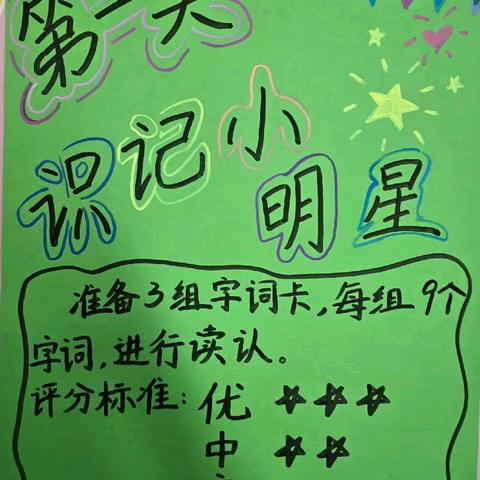 第一关
识记小
明星
准备3组字词卡,每组9个
字词,进行读认。
评分标准:优 ★★★
中 ★★